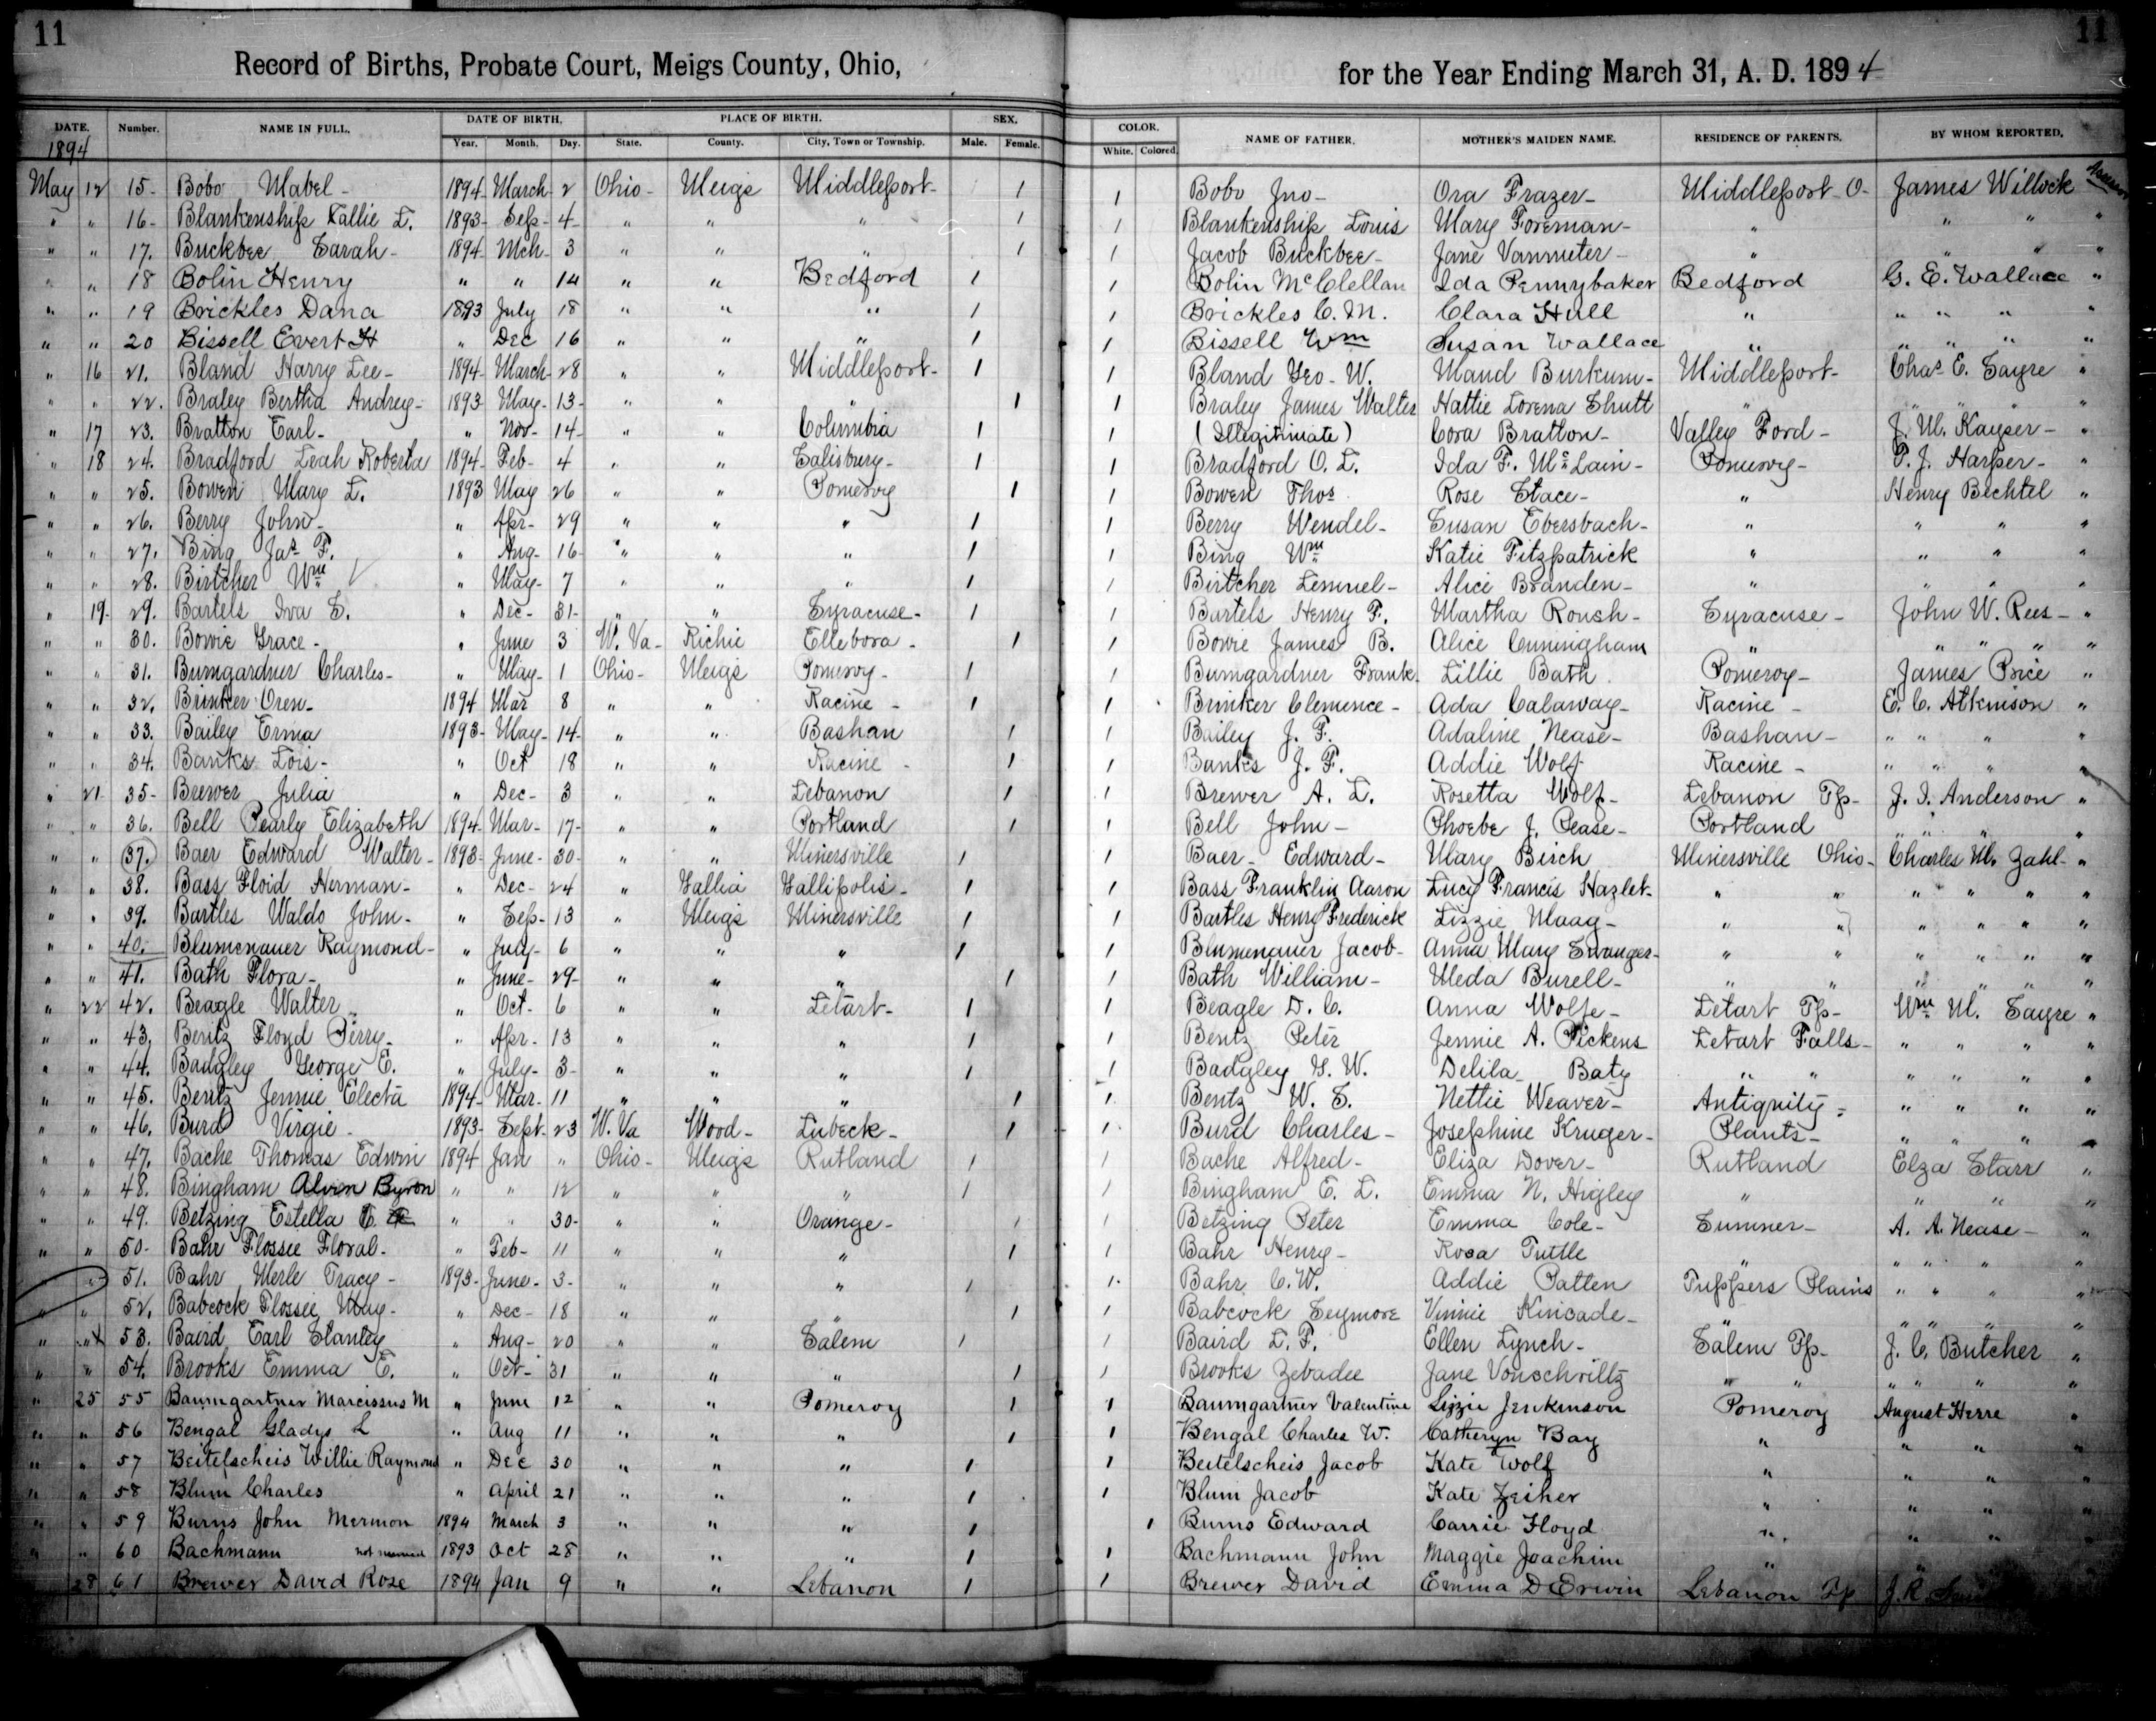 11 11
Record of Births, Probate Court, Meigs County, Ohio, for the Year Ending March 31, A. D. 1894
DATE. Number. NAME IN FULL. DATE OF BIRTH. PLACE OF BIRTH. SEX. COLOR. NAME OF FATHER. MOTHER'S MAIDEN NAME. RESIDENCE OF PARENTS. BY WHOM REPORTED.
1894 Year. Month. Day. State. County. City, Town or Township. Male. Female. White. Colored.
May 12 15- Bobo Mabel- 1894- March- 2 Ohio- Meigs Middleport- 1 1 Bobo Jno- Ora Frazer- Middleport- O- James Willock Assessor
" " 16- Blankenship Kallie L. 1893- Sep- 4- " " " 1 1 Blankenship Louis Mary Foreman- " " " "
" " 17. Buckbee Sarah- 1894- Mch- 3 " " " 1 1 Jacob Buckbee- Jane Vanmeter- " " " "
" " 18 Bolin Henry " " 14 " " Bedford 1 1 Bolin McClellan Ida Pennybaker Bedford G. E. Wallace "
" " 19 Brickles Dana 1893 July 18 " " " 1 1 Brickles C. M. Clara Hull " " " " "
" " 20 Bissell Evert H " Dec 16 " " " 1 1 Bissell Wm Susan Wallace " " " " "
" 16 21. Bland Harry Lee- 1894- March- 28 " " Middleport- 1 1 Bland Geo- W. Maud Burkum- Middleport- Chas E. Sayre "
" " 22. Braley Bertha Andrey- 1893- May- 13- " " " 1 1 Braley James Walter Hattie Lorena Shutt " " " " "
" 17 23. Bratton Earl- " Nov- 14- " " Columbia 1 1 (Illegitimate) Cora Bratton- Valley Ford- J. M. Kayser- "
" 18 24. Bradford Leah Roberta 1894- Feb- 4 " " Salisbury- 1 1 Bradford O. L. Ida F. McLain- Pomeroy- P. J. Harper- "
" " 25. Bowen Mary L. 1893 May 26 " " Pomeroy 1 1 Bowen Thos Rose Stace- " Henry Bechtel "
" " 26. Berry John- " Apr- 29 " " " 1 1 Berry Wendel- Susan Ebersbach- " " " "
" " 27. Bing Jas F. " Aug- 16- " " " 1 1 Bing Wm Katie Fitzpatrick " " " "
" " 28. Birtcher Wm " May- 7 " " " 1 1 Birtcher Lemuel- Alice Branden- " " " "
" 19- 29. Bartels Iva S. " Dec- 31- " " Syracuse- 1 1 Bartels Henry F. Martha Roush- Syracuse- John W. Rees- "
" " 30. Bowie Grace- " June 3 W. Va- Richie Ellebora- 1 1 Bowie James B. Alice Cunningham " " " " "
" " 31. Bumgardner Charles- " May- 1 Ohio- Meigs Pomeroy- 1 1 Bumgardner Frank. Lillie Bath Pomeroy- James Price "
" " 32. Brinker Oren- 1894 Mar 8 " " Racine- 1 1 Brinker Clemence- Ada Calaway- Racine- E. C. Atkinson "
" " 33. Bailey Erma 1893- May- 14- " " Bashan 1 1 Bailey J. F. Adaline Nease- Bashan- " " " "
" " 34. Banks Lois- " Oct 18 " " Racine- 1 1 Banks J. F. Addie Wolf Racine- " " " "
" 21- 35- Brewer Julia " Dec- 3 " " Lebanon 1 1 Brewer A. L. Rosetta Wolf- Lebanon Tp- J. I. Anderson "
" " 36. Bell Pearly Elizabeth 1894- Mar- 17- " " Portland 1 1 Bell John- Phoebe J. Pease- Portland " " " "
" " 37. Baer Edward Walter- 1893- June- 30- " " Minersville 1 1 Baer- Edward- Mary Birch Minersville Ohio- Charles W. Zahl- "
" " 38. Bass Floid Herman- " Dec- 24 " Gallia Gallipolis- 1 1 Bass Franklin Aaron Lucy Francis Hazlet- " " " " " "
" " 39. Bartles Waldo John- " Sep- 13 " Meigs Minersville 1 1 Bartles Henry Frederick Lizzie Maag- " " " " " "
" " 40. Blumenauer Raymond- " July- 6 " " " 1 1 Blumenauer Jacob- Anna Mary Swanger- " " " " " "
" " 41. Bath Flora- " June- 29- " " " 1 1 Bath William- Meda Burell- " " " " " "
" 22 42. Beagle Walter " Oct- 6 " " Letart- 1 1 Beagle D. C. Anna Wolfe- Letart Tp- Wm M. Sayre "
" " 43. Bentz Floyd Perry- " Apr- 13 " " " 1 1 Bentz Peter Jennie A. Pickens Letart Falls- " " " "
" " 44. Badgley George E. " July- 3- " " " 1 1 Badgley G. W. Delila- Baty " " " " " "
" " 45. Bentz Jennie Electa 1894- Mar- 11 " " " 1 1 Bentz W. S. Nettie Weaver- Antiquity- " " " "
" " 46. Burd Virgie- 1893- Sept- 23 W. Va Wood- Lubeck- 1 1 Burd Charles- Josephine Kruger- Plants- " " " "
" " 47. Bache Thomas Edwin 1894 Jan " Ohio- Meigs Rutland 1 1 Bache Alfred- Eliza Dover- Rutland Elza Starr "
" " 48. Bingham Alven Byron " " 12 " " " 1 1 Bingham E. L. Emma N. Higley " " " "
" " 49. Betzing Estella C. " " 30- " " Orange- 1 1 Betzing Peter Emma Cole- Sumner- A. A. Nease- "
" " 50- Bahr Flossee Floral- " Feb- 11 " " " 1 1 Bahr Henry- Rosa Tuttle " " " " "
" 51. Bahr Merle Tracy- 1893- June- 3- " " " 1 1 Bahr C. W. Addie Patten Tuppers Plains " " " "
" " 52. Babcock Flossie May- " Dec- 18 " " " 1 1 Babcock Seymore Vinnie Kincade- " " " " "
" " 53. Baird Earl Stanley " Aug- 20 " " Salem 1 1 Baird L. F. Ellen Lynch- Salem Tp- J. C. Butcher "
" " 54. Brooks Emma E. " Oct- 31 " " " 1 1 Brooks Zebadee Jane Vonschriltz " " " " " "
" 25 55 Baumgartner Marcissus M " June 12 " " Pomeroy 1 1 Baumgartner Valentine Lizzie Jenkinson Pomeroy August Herre "
" " 56 Bengal Gladys L " Aug 11 " " " 1 1 Bengal Charles W. Catheryn Bay " " " "
" " 57 Beitelscheis Willie Raymond " Dec 30 " " " 1 1 Beitelscheis Jacob Kate Wolf " " " "
" " 58 Blum Charles " April 21 " " " 1 1 Blum Jacob Kate Zeiher " " " "
" " 59 Burns John Mermon 1894 March 3 " " " 1 1 Burns Edward Carrie Floyd " " " "
" " 60 Bachmann not named 1893 Oct 28 " " " 1 1 Bachmann John Maggie Joachim " " " "
28 61 Brewer David Rose 1894 Jan 9 " " Lebanon 1 1 Brewer David Emma D Erwin Lebanon Tp J. R.